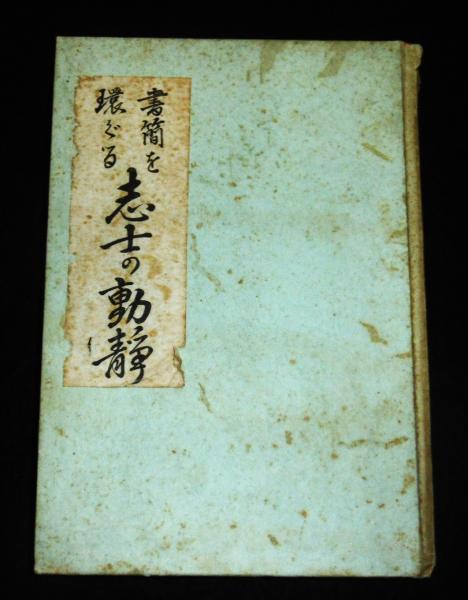 書簡を
環ぐる
志士の動静